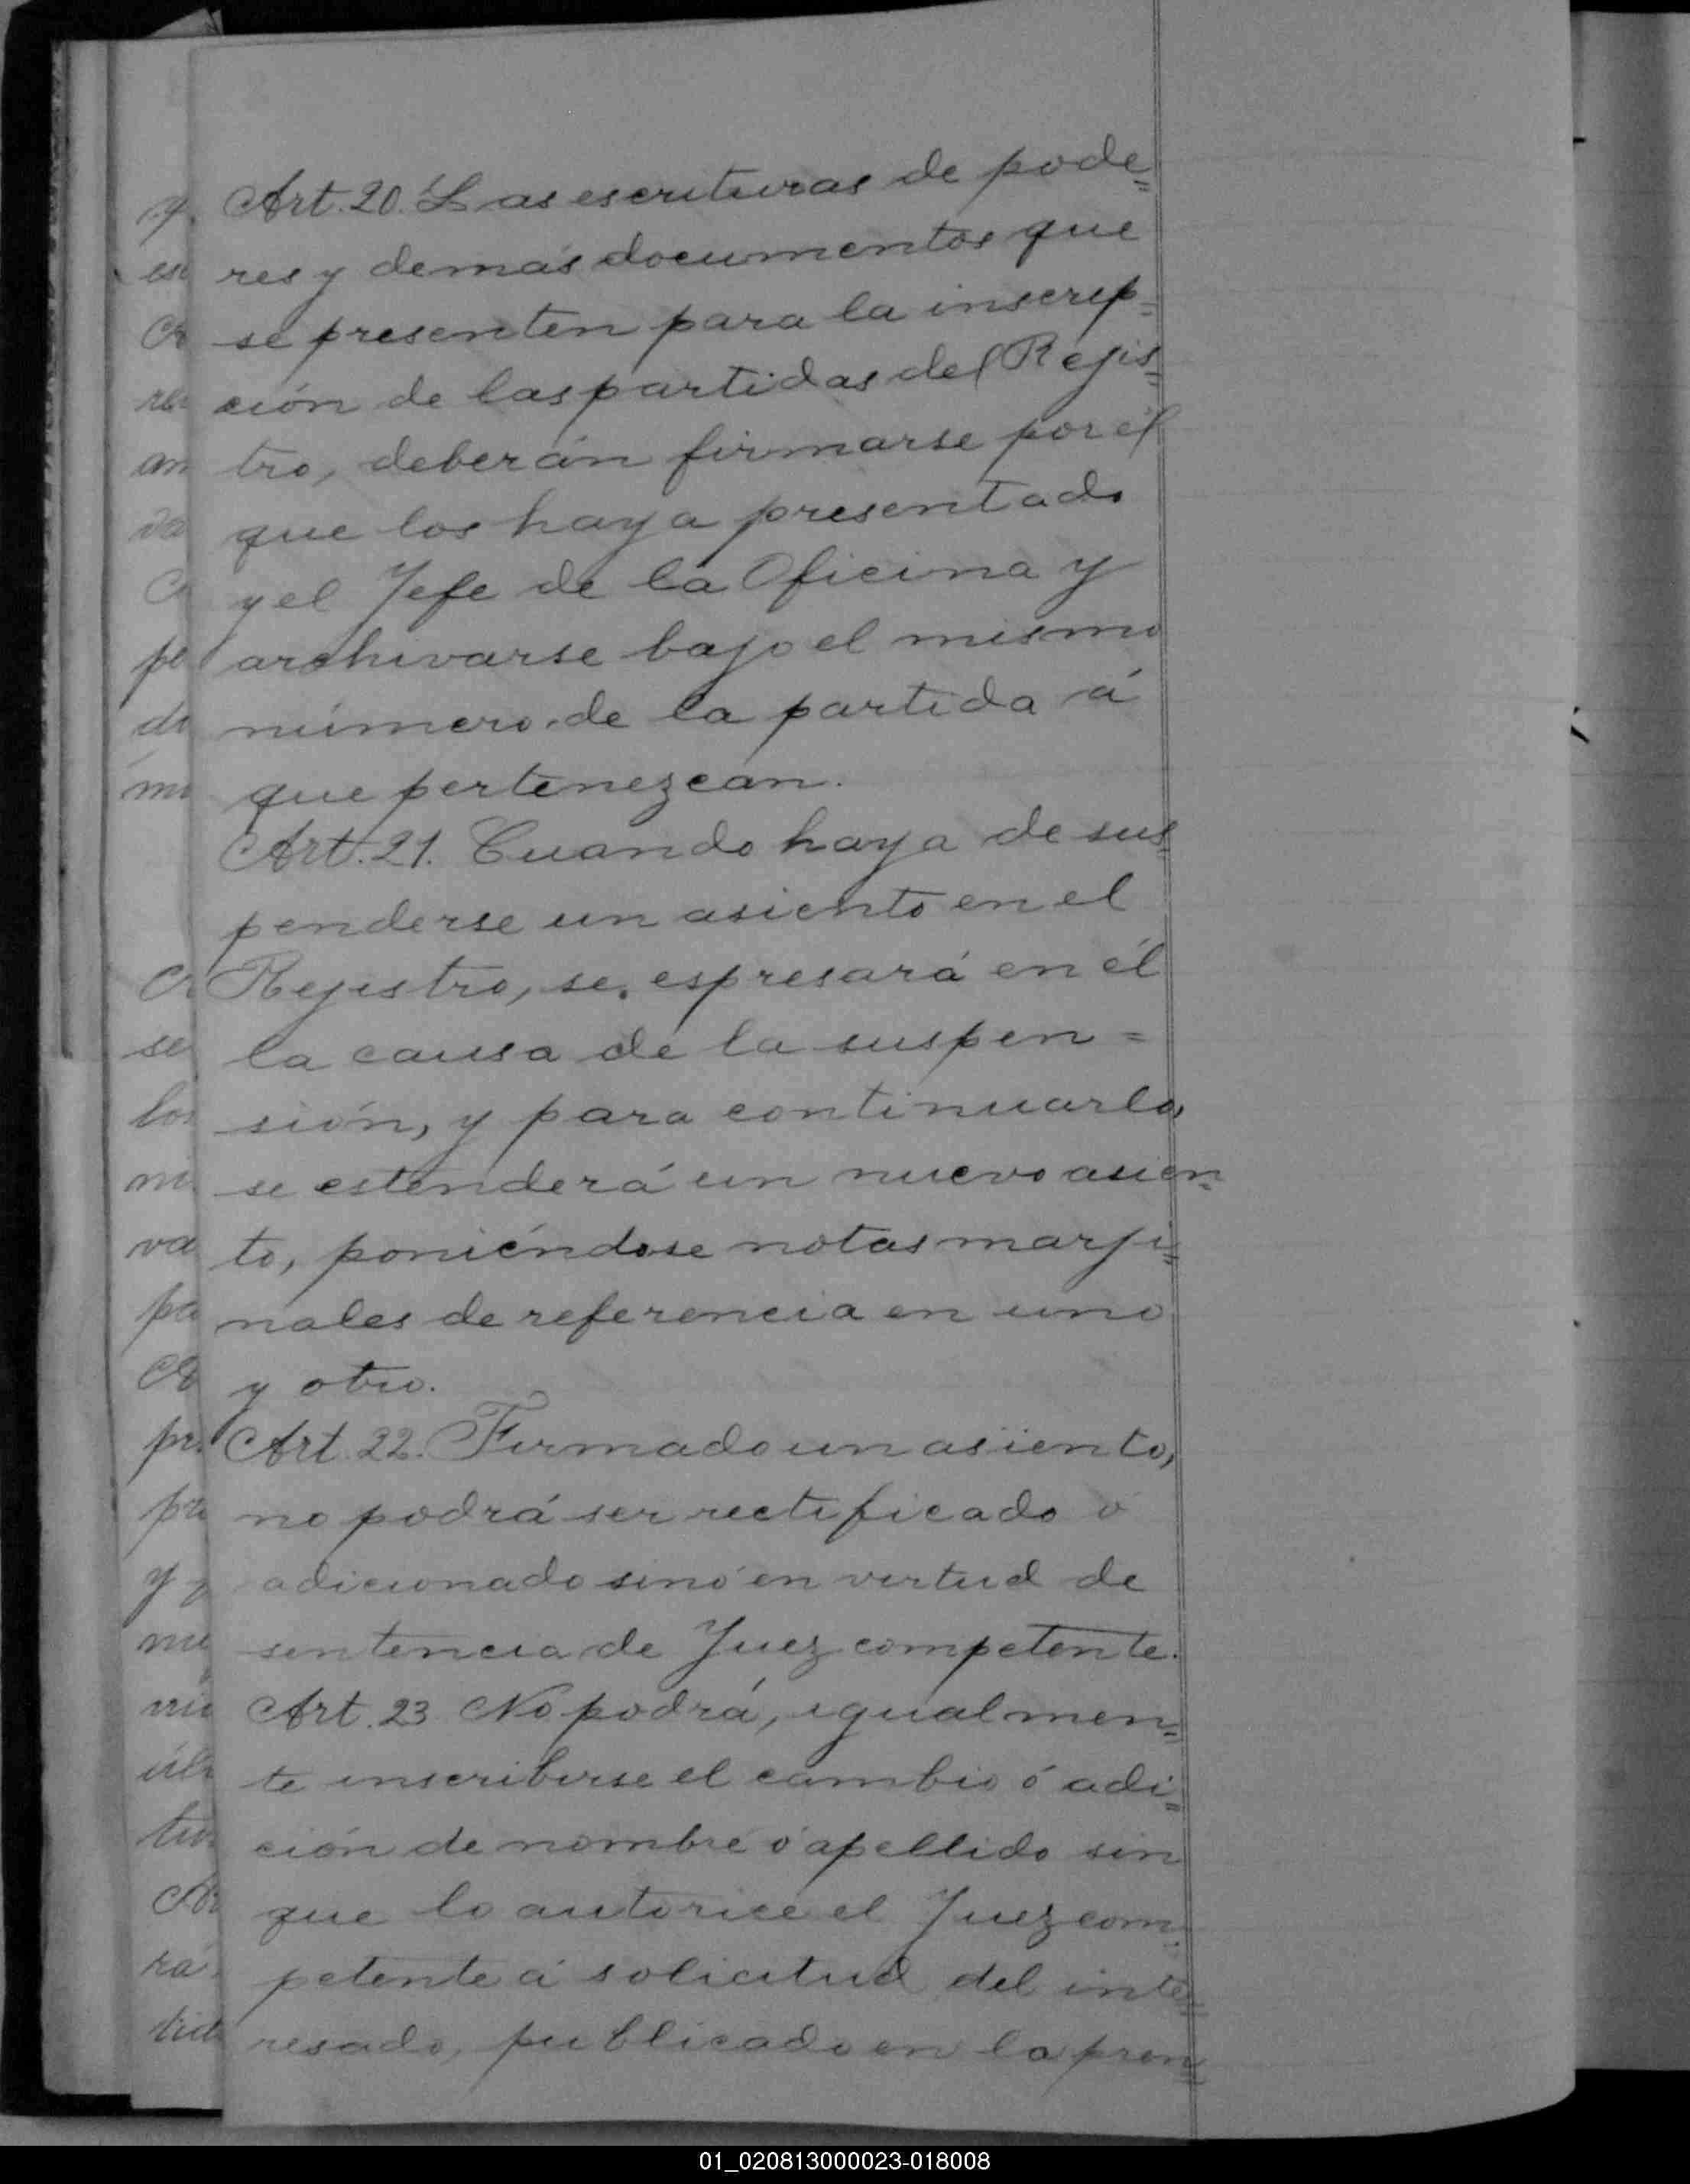 Art. 20. Las escrituras de pode=
res y demás documentos que
se presenten para la inscrip=
ción de las partidas del Rejis=
tro, deberán firmarse por él
que los haya presentado
y el Jefe de la Oficina y
archivarse bajo el mismo
número de la partida á
que pertenezcan.
Art. 21. Cuando haya de sus=
penderse un asiento en el
Rejistro, se espresará en él
la causa de la suspen=
sión, y para continuarlo,
se estenderá un nuevo asien=
to, poniéndose notas marji=
nales de referencia en uno
y otro.
Art. 22. Firmado un asiento,
no podrá ser rectificado ó
adicionado sinó en virtud de
sentencia de Juez competente.
Art. 23 No podrá, igualmen=
te inscribirse el cambio ó adi=
ción de nombre ó apellido sin
que lo autorice el Juez com=
petente á solicitud del inte=
resado, publicado en la pren=
01_020813000023-018008